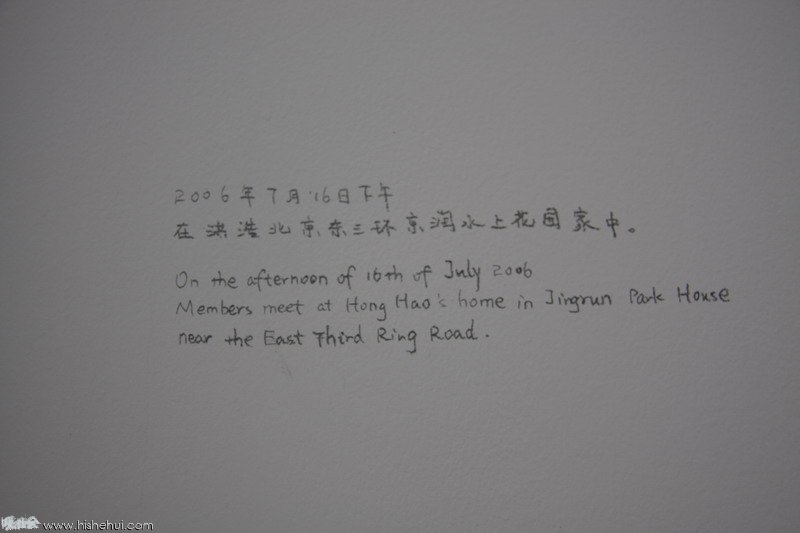 2006年7月16日下午
在洪浩北京东三环京润水上花园家中。
On the afternoon of 16th of July 2006
Members meet at Hong Hao's home in Jingrun Park House
near the East Third Ring Road.
www.hishehui.com